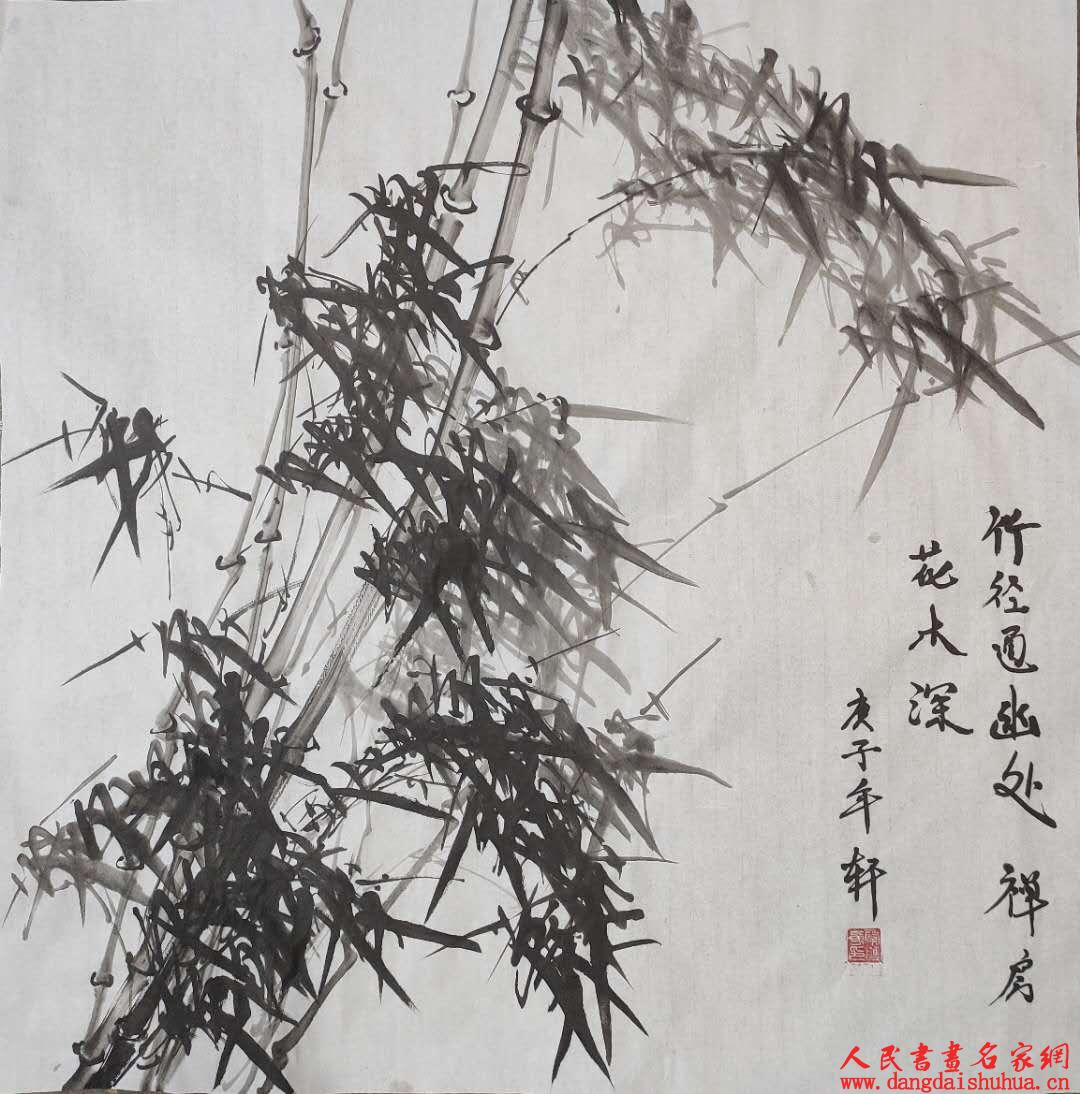 竹径通幽处 禅房
花木深
庚子年 轩
人民書畫名家網
www.dangdaishuhua.cn